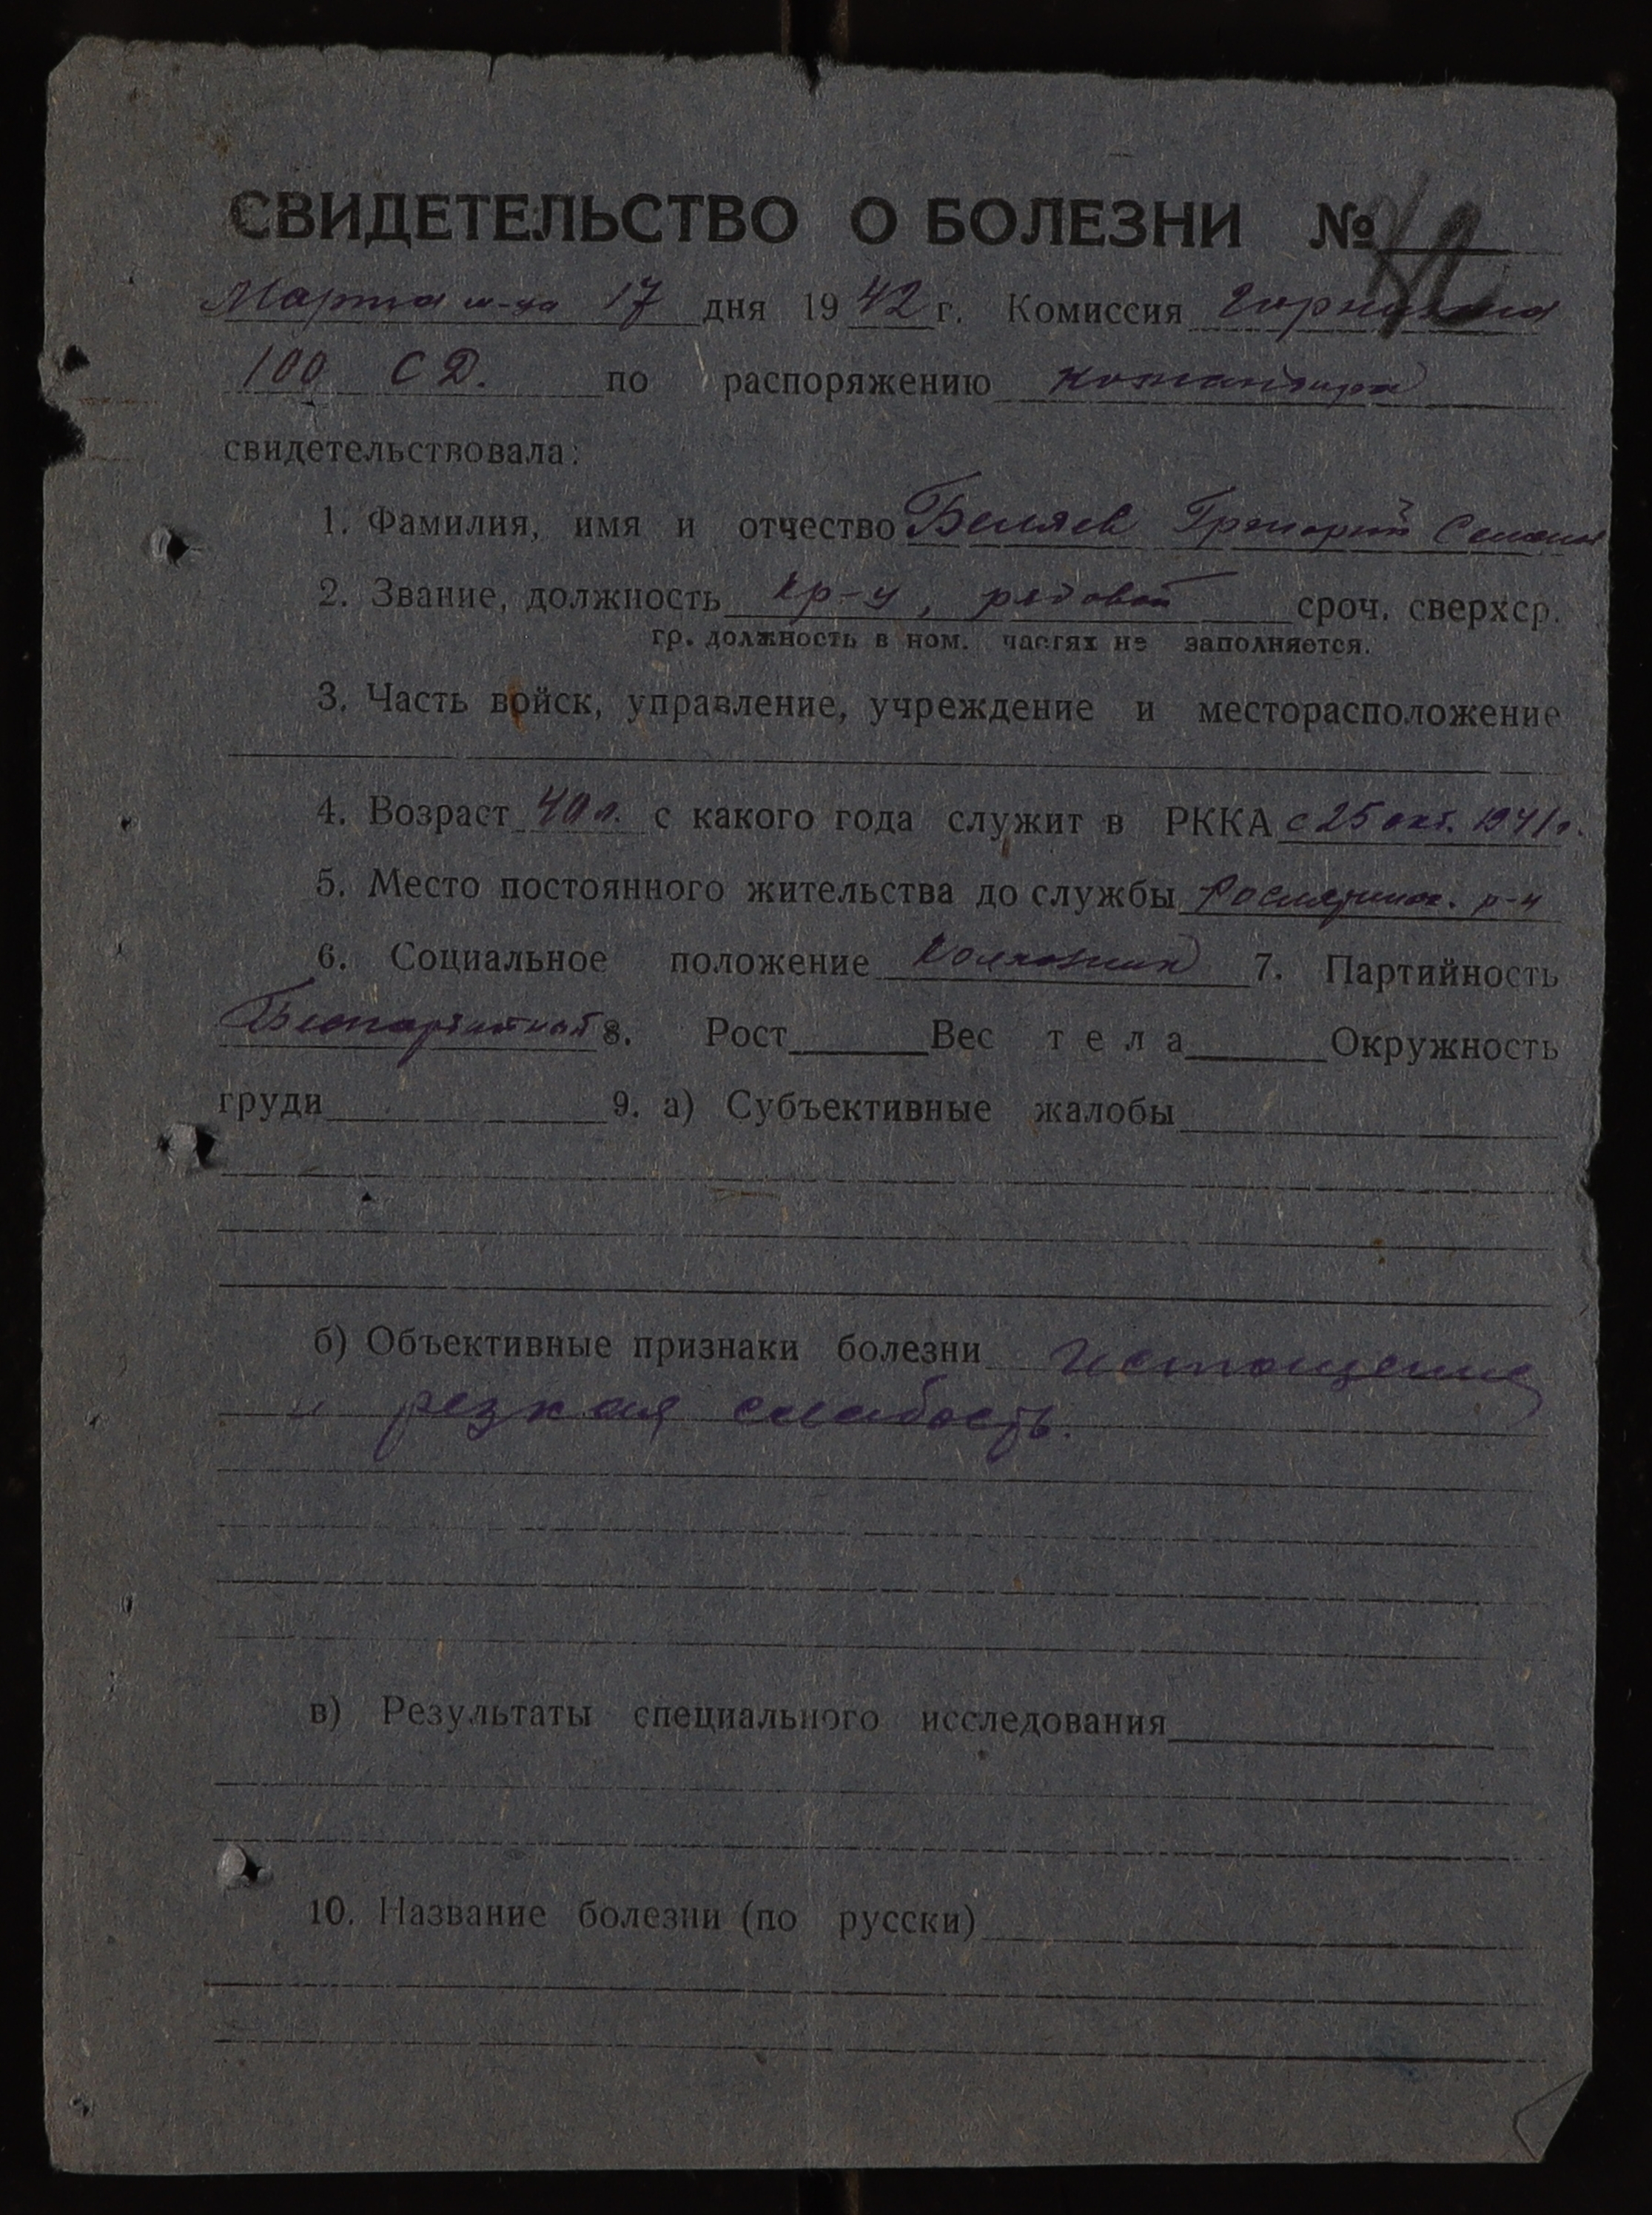 СВИДЕТЕЛЬСТВО О БОЛЕЗНИ №
Марта м-ца 17 дня 1942 г. Комиссия гарнизона
100 СД. по распоряжению командира
свидетельствовала:
1. Фамилия, имя и отчество Беляев Григорий Семенов
2. Звание, должность кр-ц, рядовой сроч. сверхср.
гр. должность в ном. частях не заполняется.
3. Часть войск, управление, учреждение и месторасположение
4. Возраст 40 л. с какого года служит в РККА с 25 окт. 1941 г.
5. Место постоянного жительства до службы Рослятинск. р-н
6. Социальное положение Колхозник 7. Партийность
Беспартийный 8. Рост Вес тела Окружность
груди 9. а) Субъективные жалобы
б) Объективные признаки болезни Истощение
и резкая слабость.
в) Результаты специального исследования
10. Название болезни (по русски)